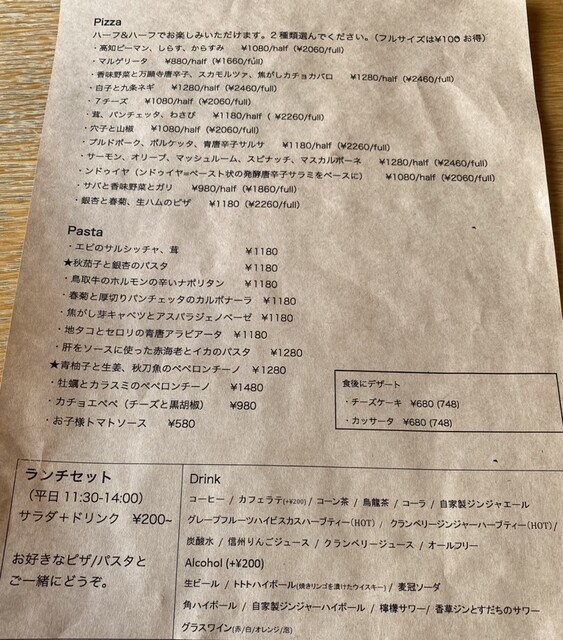 Pizza
ハーフ&ハーフでお楽しみいただけます。2種類選んでください。（フルサイズは¥100お得）
・高知ピーマン、しらす、からすみ ¥1080/half (¥2060/full)
・マルゲリータ ¥880/half (¥1660/full)
・香味野菜と万願寺唐辛子、スカモルツァ、焦がしカチョカバロ ¥1280/half (¥2460/full)
・白子と九条ネギ ¥1280/half (¥2460/full)
・7チーズ ¥1080/half (¥2060/full)
・茸、パンチェッタ、わさび ¥1180/half ( ¥2260/full)
・穴子と山椒 ¥1080/half (¥2060/full)
・プルドポーク、ポルケッタ、青唐辛子サルサ ¥1180/half (¥2260/full)
・サーモン、オリーブ、マッシュルーム、スピナッチ、マスカルポーネ ¥1280/half (¥2460/full)
・ンドゥイヤ（ンドゥイヤ=ペースト状の発酵唐辛子サラミをベースに） ¥1080/half (¥2060/full)
・サバと香味野菜とガリ ¥980/half (¥1860/full)
・銀杏と春菊、生ハムのピザ ¥1180 (¥2260/full)
Pasta
・エビのサルシッチャ、茸 ¥1180
★秋茄子と銀杏のパスタ ¥1180
・鳥取牛のホルモンの辛いナポリタン ¥1180
・春菊と厚切りパンチェッタのカルボナーラ ¥1180
・焦がし芽キャベツとアスパラジェノベーゼ ¥1180
・地タコとセロリの青唐アラビアータ ¥1180
・肝をソースに使った赤海老とイカのパスタ ¥1280
★青柚子と生姜、秋刀魚のペペロンチーノ ¥1280
・牡蠣とカラスミのペペロンチーノ ¥1480
・カチョエペペ（チーズと黒胡椒） ¥980
・お子様トマトソース ¥580
食後にデザート
・チーズケーキ ¥680 (748)
・カッサータ ¥680 (748)
ランチセット
（平日 11:30-14:00）
サラダ+ドリンク ¥200~
お好きなピザ/パスタと
ご一緒にどうぞ。
Drink
コーヒー / カフェラテ(+¥200) / コーン茶 / 烏龍茶 / コーラ / 自家製ジンジャエール
グレープフルーツハイビスカスハーブティー(HOT) / クランベリージンジャーハーブティー(HOT)/
炭酸水 / 信州りんごジュース / クランベリージュース / オールフリー
Alcohol (+¥200)
生ビール / トトトハイボール(焼きリンゴを漬けたウイスキー) / 麦冠ソーダ
角ハイボール / 自家製ジンジャーハイボール / 檸檬サワー/ 香草ジンとすだちのサワー
グラスワイン(赤/白/オレンジ/泡)